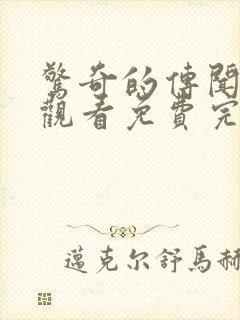 驚奇的傳聞
觀看免費完
邁克尔舒馬赫